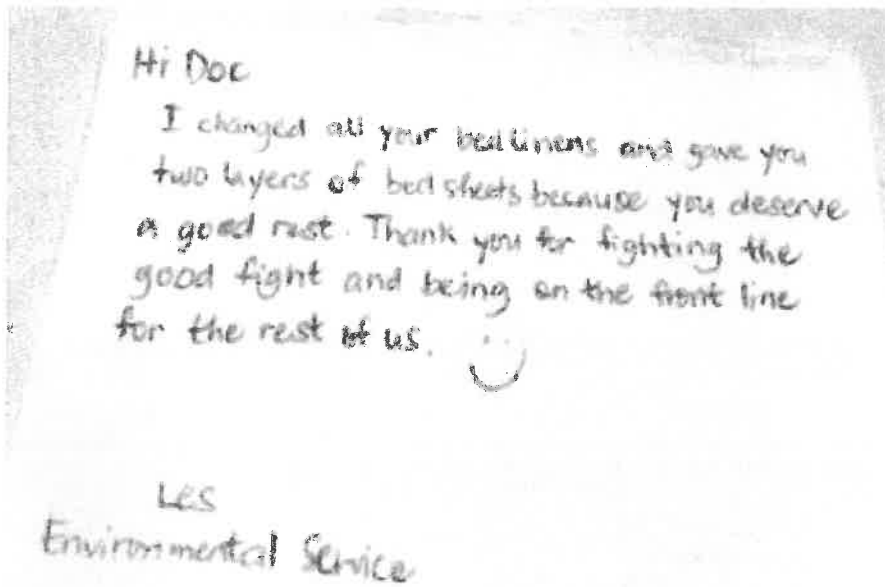 Hi Doc
I changed all your bed linens and gave you
two layers of bed sheets because you deserve
a good rest. Thank you for fighting the
good fight and being on the front line
for the rest of us.
Les
Environmental Service